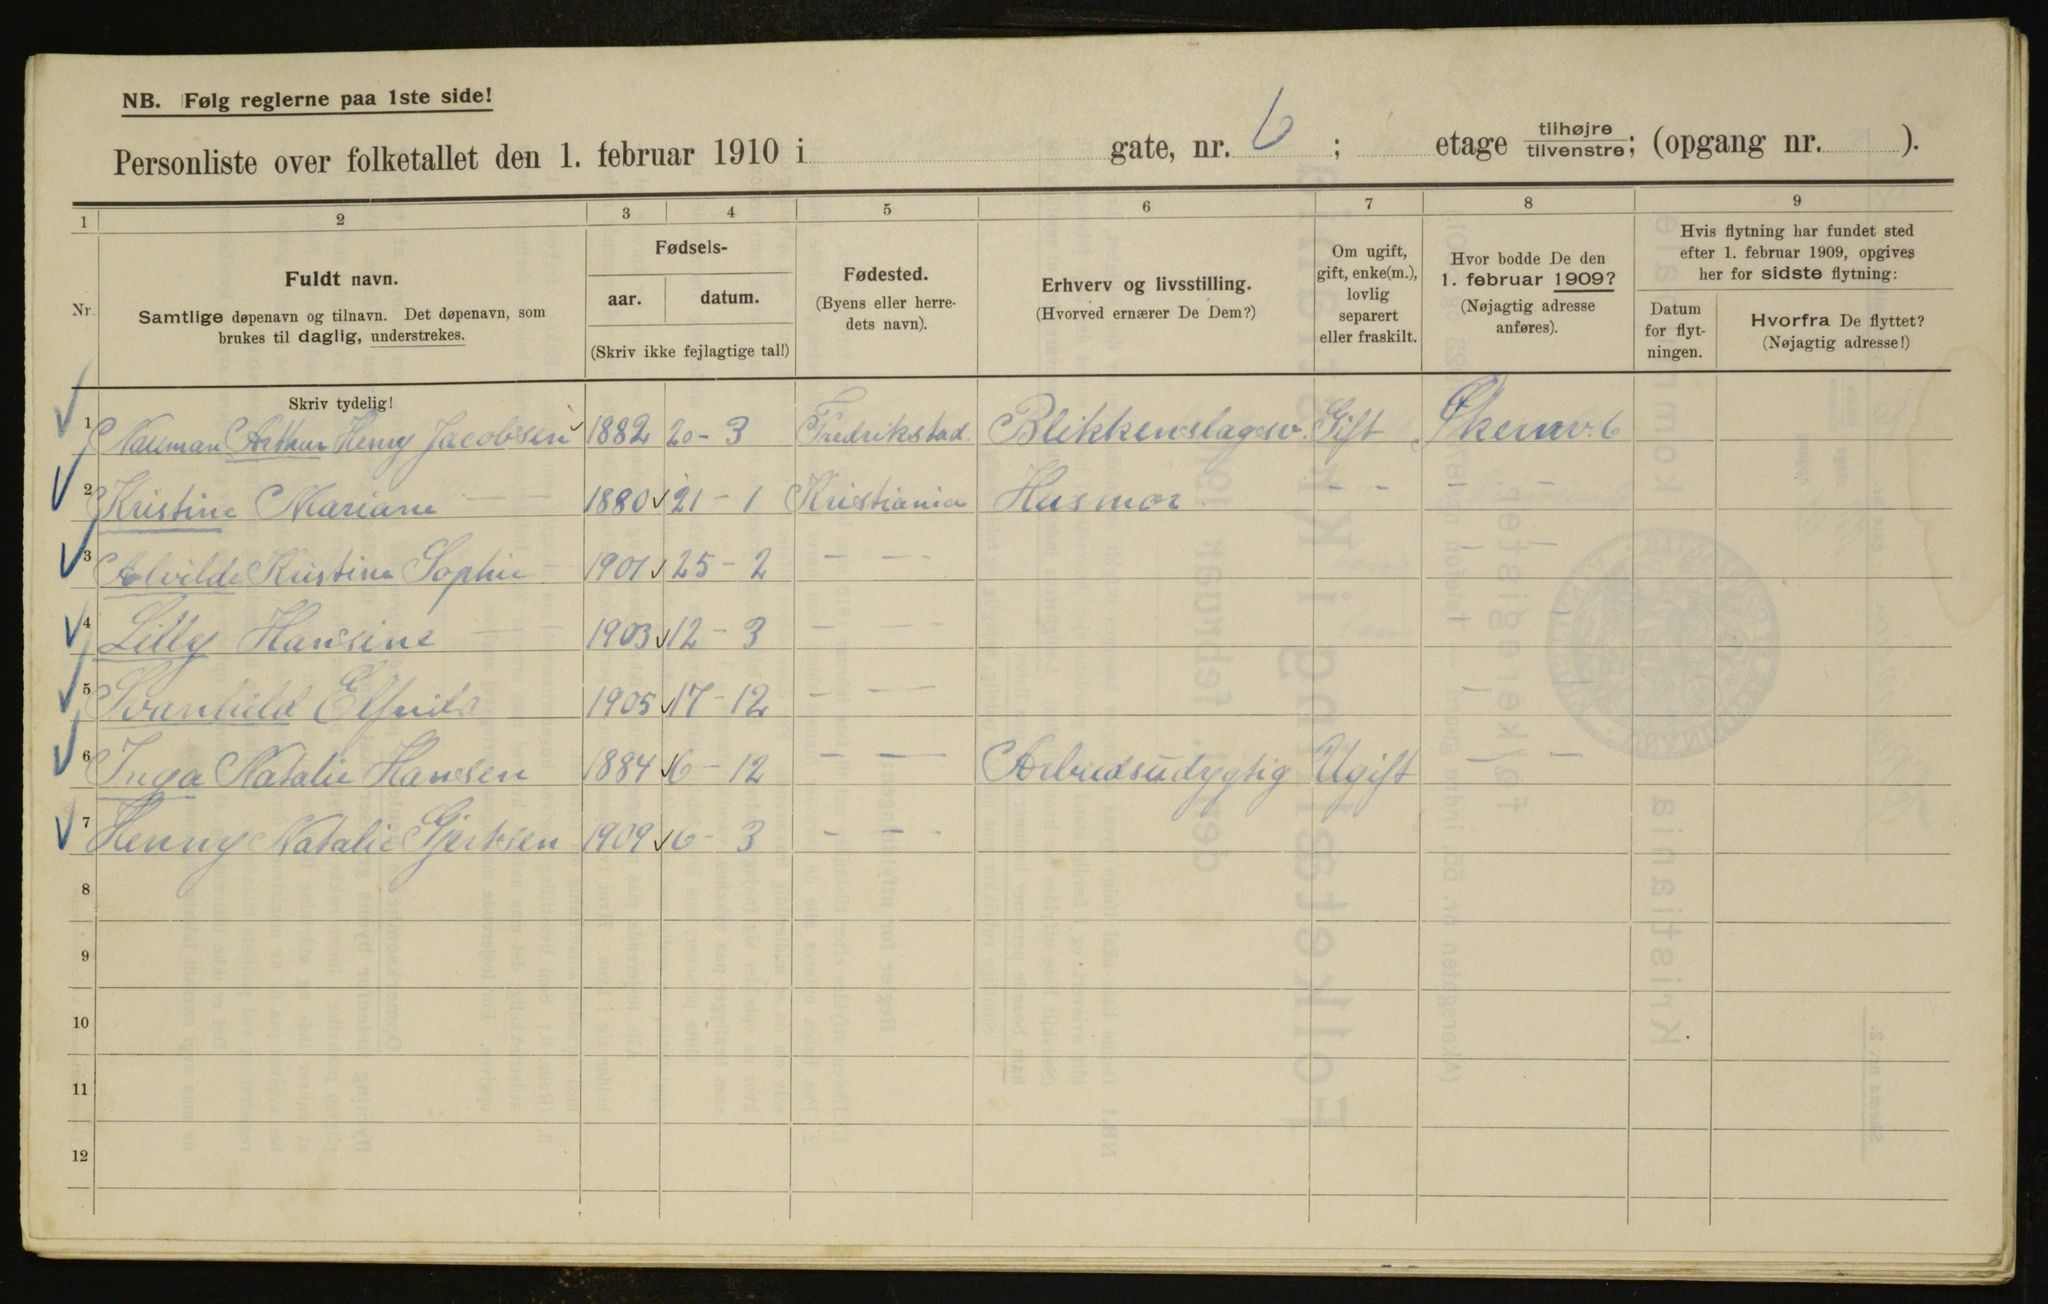 NB. Følg reglerne paa 1ste side!
Personliste over folketallet den 1. februar 1910 i gate, nr. 6 ; etage tilhøjre tilvenstre; (opgang nr. ).
1 2 3 4 5 6 7 8 9
Nr. Fuldt navn. Samtlige døpenavn og tilnavn. Det døpenavn, som brukes til daglig, understrekes.
Fødsels-
aar. datum.
(Skriv ikke fejlagtige tal!)
Fødested. (Byens eller herredets navn).
Erhverv og livsstilling. (Hvorved ernærer De Dem?)
Om ugift, gift, enke(m.), lovlig separert eller fraskilt.
Hvor bodde De den 1. februar 1909? (Nøjagtig adresse anføres).
Hvis flytning har fundet sted efter 1. februar 1909, opgives her for sidste flytning:
Datum for flytningen.
Hvorfra De flyttet? (Nøjagtig adresse!)
Skriv tydelig!
1 Nauman Arthur Henry Jacobsen 1882 20-3 Fredrikstad. Blikkenslagesv. Gift Økernv. 6
2 Kristine Mariane — — 1880 21-1 Kristiania Husmor - - - -
3 Alvilde Kristine Sophie 1901 25-2 - -
4 Lilly Hansine 1903 12-3 - -
5 Svanhild Elfrida 1905 17-12 - -
6 Inga Natalie Hansen 1884 6-12 - - Arbeidsudygtig Ugift - -
7 Henny Natalie Gjertsen 1909 6-3 - -
8
9
10
11
12